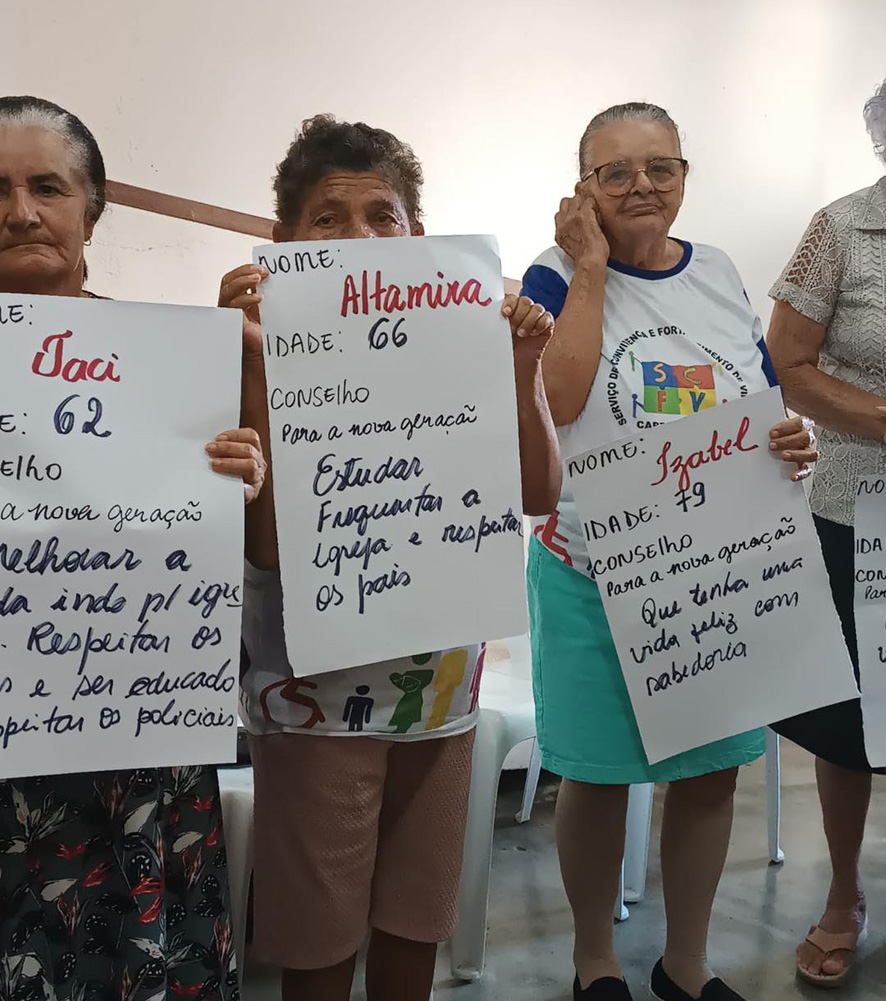 ME:
Jaci
E: 62
elho
a a nova geração
melhorar a
da indo p/ igre
. Respeitar os
s e ser educado
speitar os policiais
NOME:
Altamira
IDADE: 66
CONSELHO
Para a nova geração
Estudar
Frequentar a
Igreja e respeitar
os pais
SERVIÇO DE CONVIVENCIA E FORT
CIMENTO DE VI
SC
FV
NOME: Izabel
IDADE: 79
CONSELHO
Para a nova geração
Que tenha uma
vida feliz com
sabedoria
NO
IDA
CON
Par